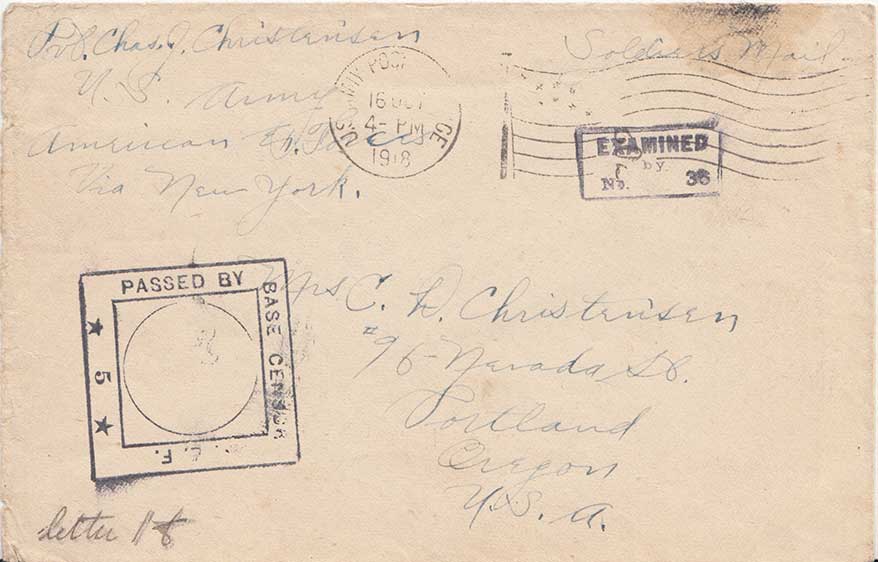 Pvt. Chas. J. Christensen
U. S. Army
American Ex. Forces
Via New York.
16 OCT
4 - PM
1918
Soldiers Mail
EXAMINED
by
No. 36
PASSED BY
BASE CENSOR
E. F.
★ 5 ★
Mrs C. D. Christensen
#96 - Nevada St.
Portland
Oregon
U. S. A.
letter 18